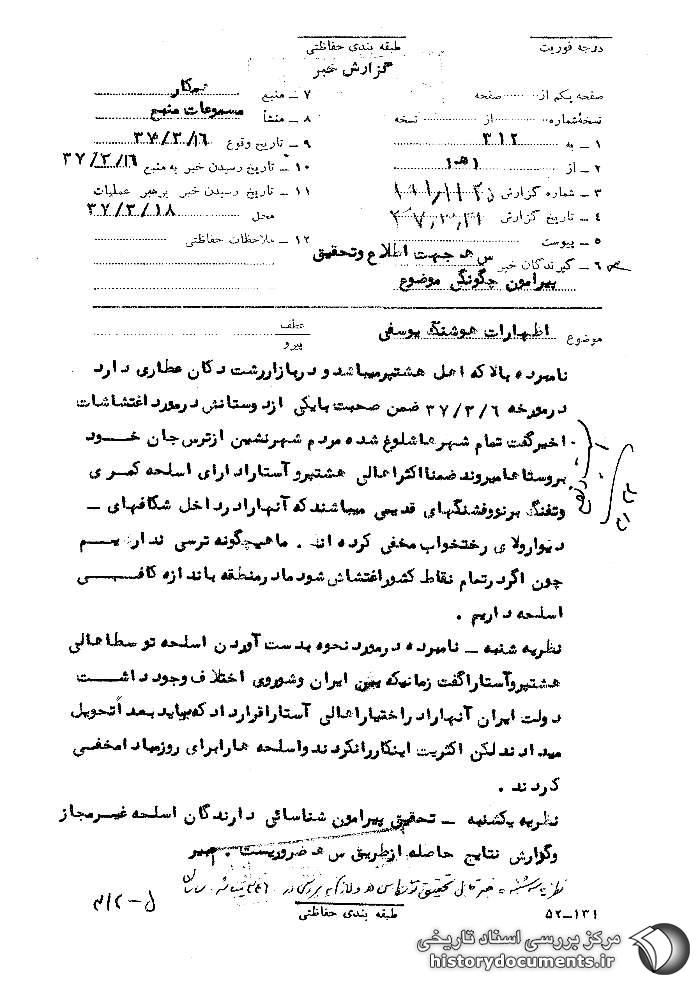 درجه فوریت
طبقه بندی حفاظتی
گزارش خبر
صفحه یکم از ........ صفحه
نسخهٔ شماره ........ از ........ نسخه
۱ ـ به ۳۱۲
۲ ـ از ۱ﻫ۱
۳ ـ شماره گزارش
۴ ـ تاریخ گزارش
۵ ـ پیوست
۶ ـ گیرندگان خبر س ﻫ جهت اطلاع وتحقیق
پیرامون چگونگی موضوع
۷ ـ منبع همکار
۸ ـ منشأ مسموعات منبع
۹ ـ تاریخ وقوع ۳۷/۳/۱۶
۱۰ ـ تاریخ رسیدن خبر به منبع ۳۷/۳/۱۶
۱۱ ـ تاریخ رسیدن خبر برهبر عملیات
محل ۳۷/۳/۱۸
۱۲ ـ ملاحظات حفاظتی
موضوع اظهارات هوشنگ یوسفی
عطف
پیرو
نامبرده بالا که اهل هشتپرمیباشد و دربازاررشت دکان عطاری دارد
درمورخه ۳۷/۳/۶ ضمن صحبت بایکی ازدوستانش درمورد اغتشاشات
اخیرگفت تمام شهرهاشلوغ شده مردم شهرنشین ازترس جان خود
بروستاهامیروند ضمنا اکثراهالی هشتپرو آستارادارای اسلحه کمری
وتفنگ برنووفشنگهای قدیمی میباشندکه آنهارادرداخل شکافهای ـ
دیوارولای رختخواب مخفی کرده اند . ماهیچگونه ترسی نداریم
چون اگردرتمام نقاط کشوراغتشاش شودمادرمنطقه باندازه کافی
اسلحه داریم .
نظریه شنبه ـ نامبرده درمورد نحوه بدست آوردن اسلحه توسط اهالی
هشتپروآستاراگفت زمانیکه بین ایران وشوروی اختلاف وجود داشت
دولت ایران آنهارادراختیاراهالی آستاراقرارداد که بایدبعداً تحویل
میدادند لکن اکثریت اینکاررانکردندواسلحه هارابرای روزمبادامخفی
کردند .
نظریه یکشنبه ـ تحقیق پیرامون شناسائی دارندگان اسلحه غیرمجاز
وگزارش نتایج حاصله ازطریق س ﻫ ضروریست .
طبقه بندی حفاظتی
۵۲-۱۳۱
مرکز بررسی اسناد تاریخی
historydocuments.ir